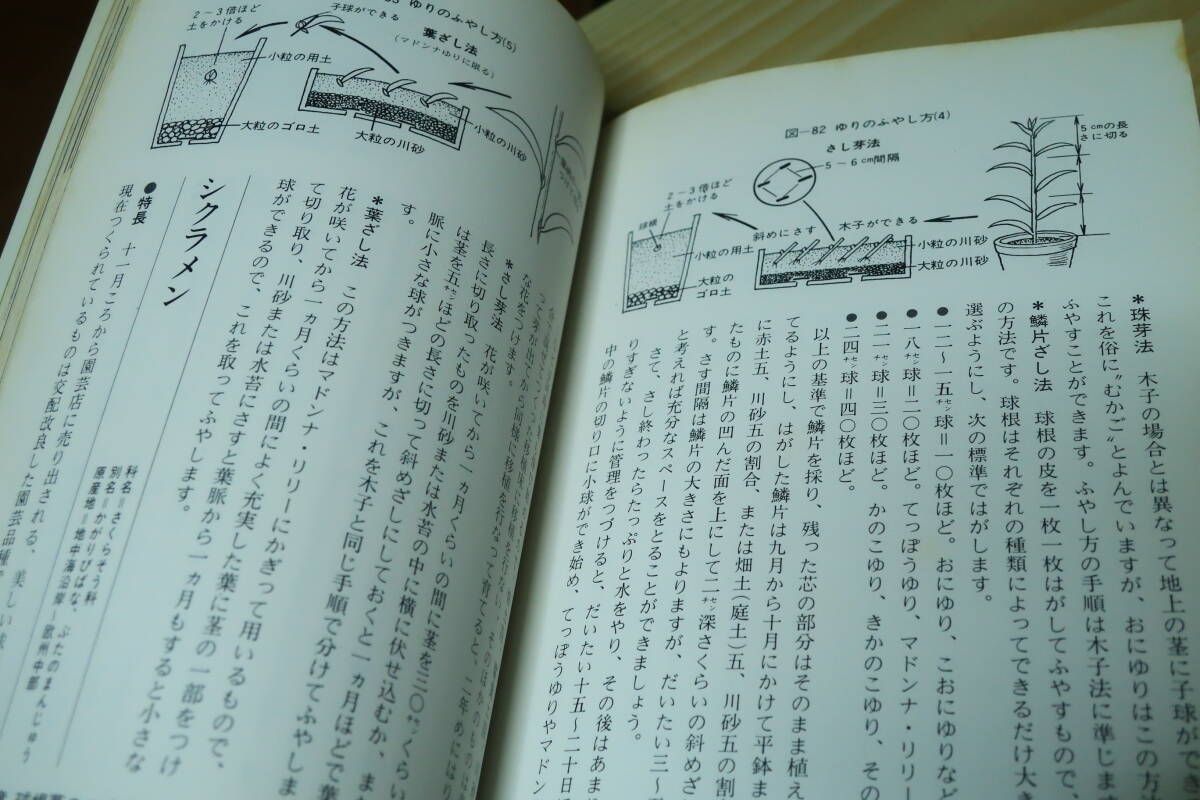 図―82 ゆりのふやし方(4)
さし芽法
5～6cm間隔
5cmの長
さに切る
2～3倍ほど
土をかける
球根
斜めにさす
木子ができる
小粒の用土
大粒の
ゴロ土
小粒の川砂
大粒の川砂
＊珠芽法　木子の場合とは異なって地上の茎に子球ができ
これを俗に〝むかご〟とよんでいますが、おにゆりはこの方
ふやすことができます。ふやし方の手順は木子法に準じま
＊鱗片ざし法　球根の皮を一枚一枚はがしてふやすもので、
の方法です。球根はそれぞれの種類によってできるだけ大き
選ぶようにし、次の標準ではがします。
●一二～一五センチ球＝一〇枚ほど。おにゆり、こおにゆりな
●一八センチ球＝二〇枚ほど。てっぽうゆり、マドンナ・リリー
●二一センチ球＝三〇枚ほど。かのこゆり、きかのこゆり、その
●二四センチ球＝四〇枚ほど。
以上の基準で鱗片を採り、残った芯の部分はそのまま植え
てるようにし、はがした鱗片は九月から十月にかけて平鉢ま
に赤土五、川砂五の割合、または畑土（庭土）五、川砂五の割
たものに鱗片の凹んだ面を上にして二センチ深さくらいの斜めざ
す。さす間隔は鱗片の大きさにもよりますが、だいたい三～
と考えれば充分なスペースをとることができましょう。
さて、さし終わったらたっぷりと水をやり、その後はあま
りすぎないように管理をつづけると、だいたい十五～二十日
中の鱗片の切り口に小球ができ始め、てっぽうゆりやマドン
83 ゆりのふやし方(5)
葉ざし法
(マドンナゆりに限る)
子球ができる
2～3倍ほど
土をかける
小粒の用土
大粒のゴロ土
大粒の川砂
小粒の川砂
な花をつけます。
＊さし芽法　花が咲いてから一ヵ月くらいの間に茎を三〇センチくらい
長さに切り取ったものを川砂または水苔の中に横に伏せ込むか、ま
は茎を五センチほどの長さに切って斜めざしにしておくと一ヵ月ほどで葉
脈に小さな球がつきますが、これを木子と同じ手順で分けてふやしま
す。
＊葉ざし法　この方法はマドンナ・リリーにかぎって用いるもので、
花が咲いてから一ヵ月くらいの間によく充実した葉に茎の一部をつけ
て切り取り、川砂または水苔にさすと葉脈から一ヵ月もすると小さな
球ができるので、これを取ってふやします。
シクラメン
科名＝さくらそう科
別名＝かがりびばな、ぶたのまんじゅう
原産地＝地中海沿岸―欧州中部
●特長　十一月ころから園芸店に売り出される、美しい球
現在つくられているものは交配改良した園芸品種で